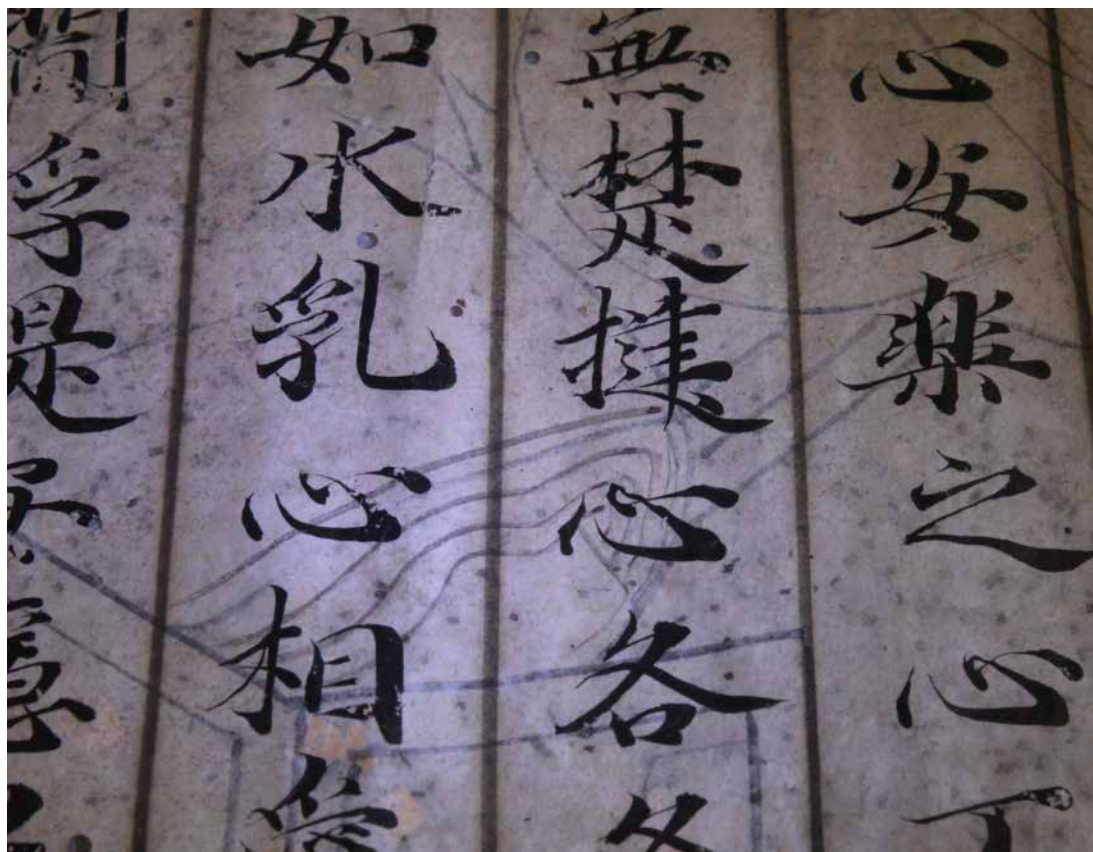 心安楽之心
無楚撻心各各
如水乳心相愛